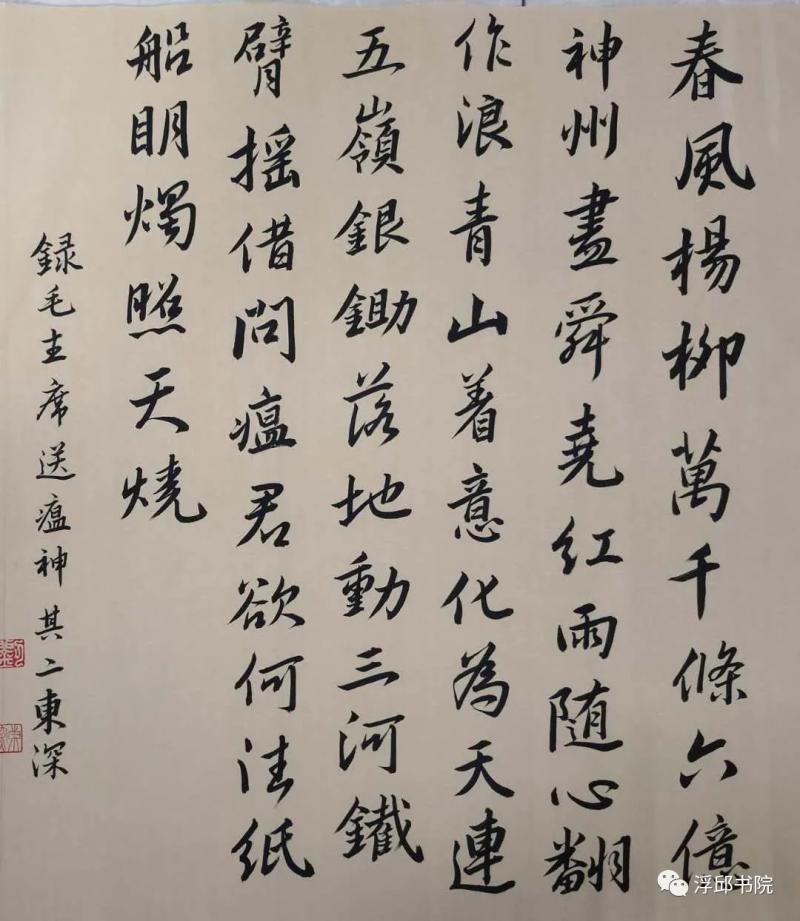 春風楊柳萬千條六億
神州盡舜堯红雨随心翻
作浪青山着意化為天連
五嶺銀鋤落地動三河鐵
臂摇借問瘟君欲何往紙
船明燭照天燒
録毛主席送瘟神其二東深
浮邱书院